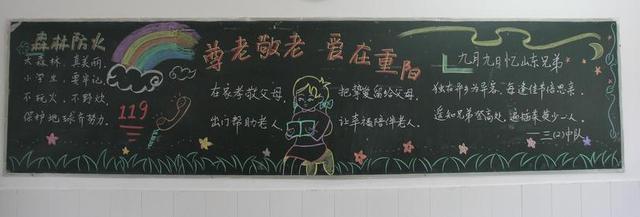 森林防火
大森林，真美丽，
小学生，要牢记，
不玩火，不野炊，
保护地球齐努力。
119
尊老敬老 爱在重阳
在家孝敬父母，
出门帮助老人，
把挚爱留给父母，
让幸福陪伴老人。
九月九日忆山东兄弟
独在异乡为异客，每逢佳节倍思亲。
遥知兄弟登高处，遍插茱萸少一人。
—三(2)中队